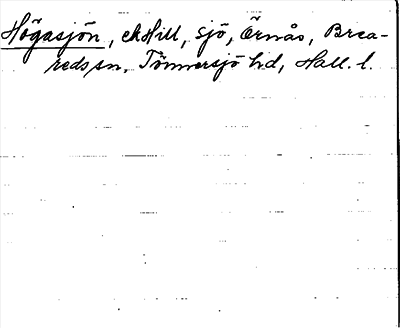 Högasjön, ekHill, sjö, Örnås, Brea-
reds sn, Tönnersjö hd, Hall. l.